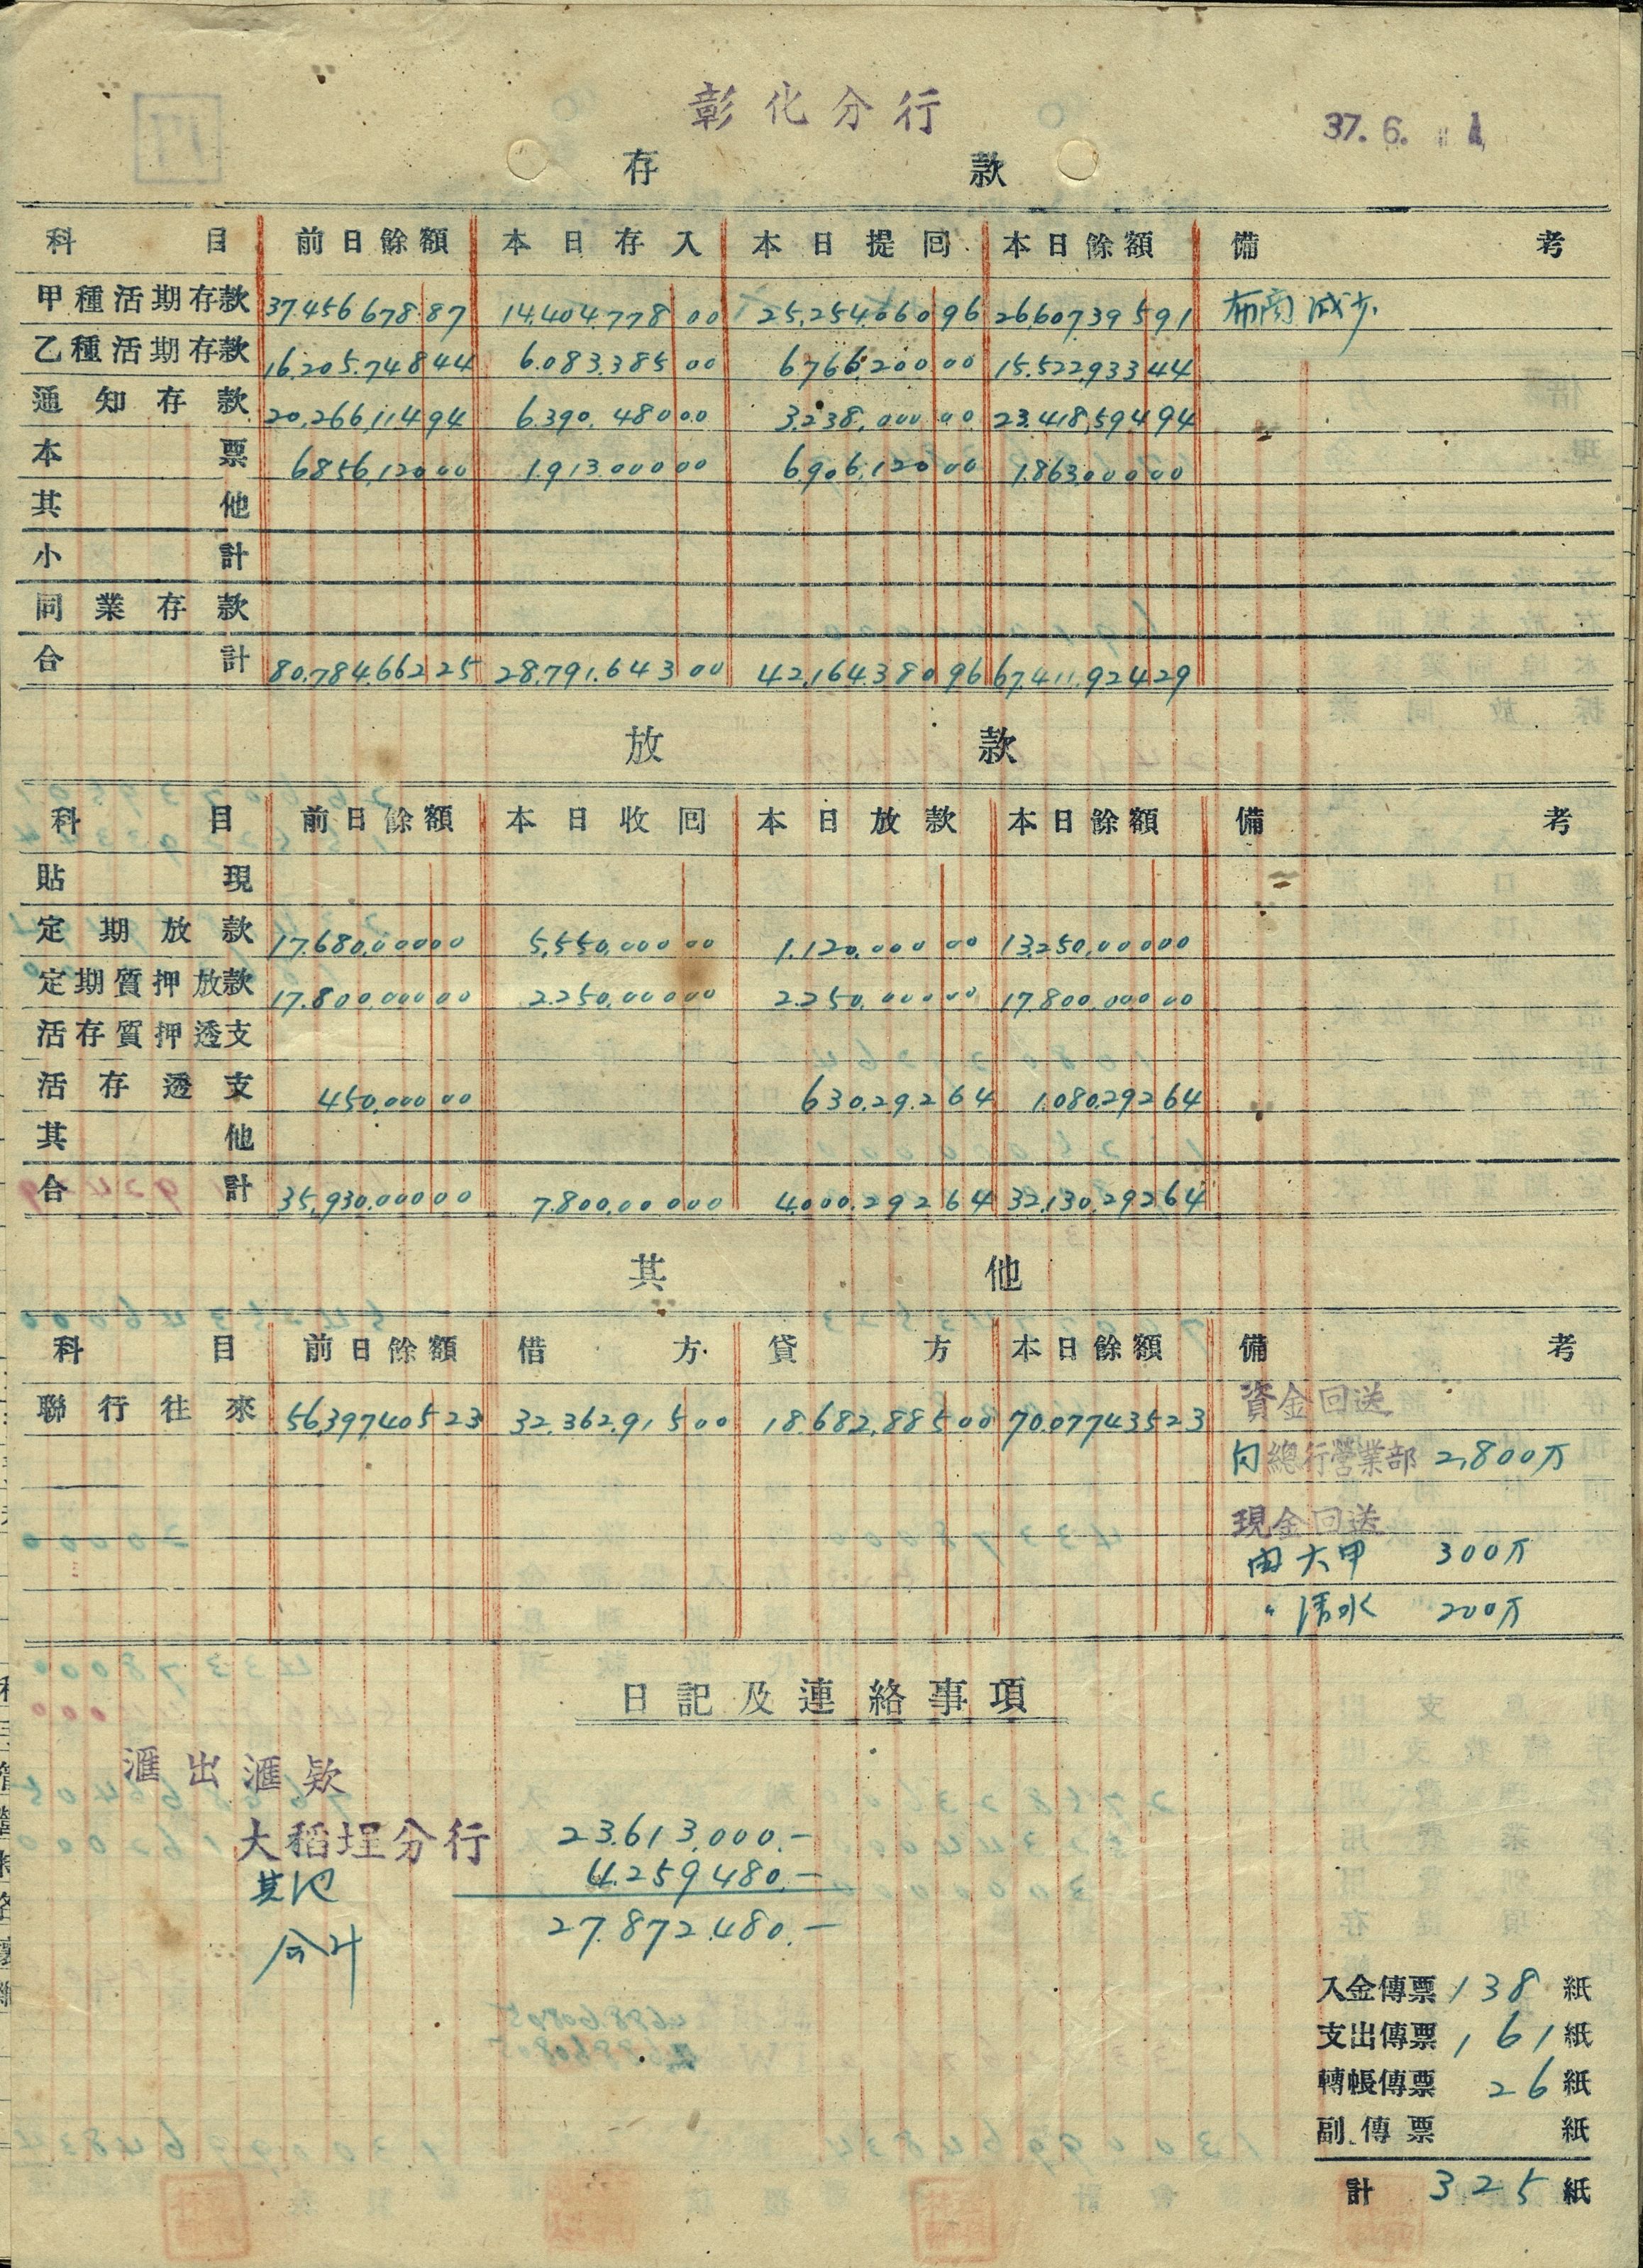 彰化分行
37. 6. 1
存 款
科目 前日餘額 本日存入 本日提回 本日餘額 備考
甲種活期存款 37.456.678.87 14.404.778 00 25.254.060 96 26.607.395 91 布商減少.
乙種活期存款 16.205.748 44 6.083.385 00 6.766.200 00 15.522.933 44
通知存款 20.266.114 94 6.390.480 00 3.238.000 00 23.418.594 94
本票 6.856.120 00 1.913.000 00 6.906.120 00 1.863.000 00
其他
小計
同業存款
合計 80.784.662 25 28.791.643 00 42.164.380 96 67.411.924 29
放 款
科目 前日餘額 本日收回 本日放款 本日餘額 備考
貼現
定期放款 17.680.000 00 5.550.000 00 1.120.000 00 13.250.000 00
定期質押放款 17.800.000 00 2.250.000 00 2.250.000 00 17.800.000 00
活存質押透支
活存透支 450.000 00 630.292 64 1.080.292 64
其他
合計 35.930.000 00 7.800.000 00 4.000.292 64 32.130.292 64
其 他
科目 前日餘額 借方 貸方 本日餘額 備考
聯行往來 56.397.405 23 32.362.915 00 18.682.885 00 70.077.435 23 資金回送
向總行營業部 2,800万
現金回送
由大甲 300万
〃清水 200万
日記及連絡事項
滙出滙款
大稻埕分行 23.613.000.-
其他 4.259.480.-
合計 27.872.480.-
入金傳票 138 紙
支出傳票 161 紙
轉帳傳票 26 紙
副傳票 紙
計 325 紙